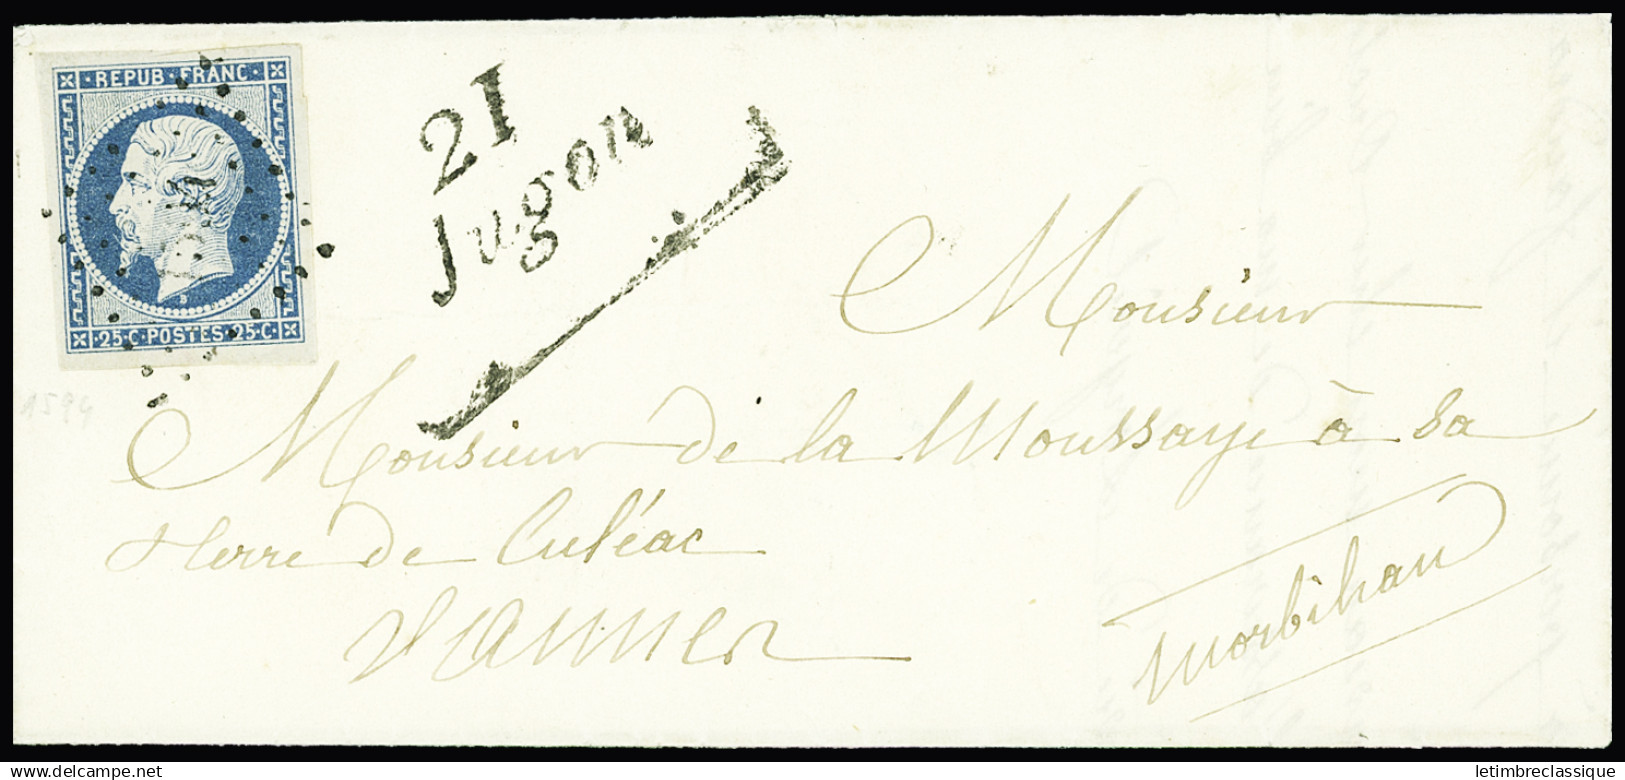 REPUB·FRANC·
·25·C·POSTES·25·C·
21
Jugon
Monsieur
Monsieur de la Moussaye à sa
terre de Cutéac
Vannes
Morbihan
1594
letimbreclassique